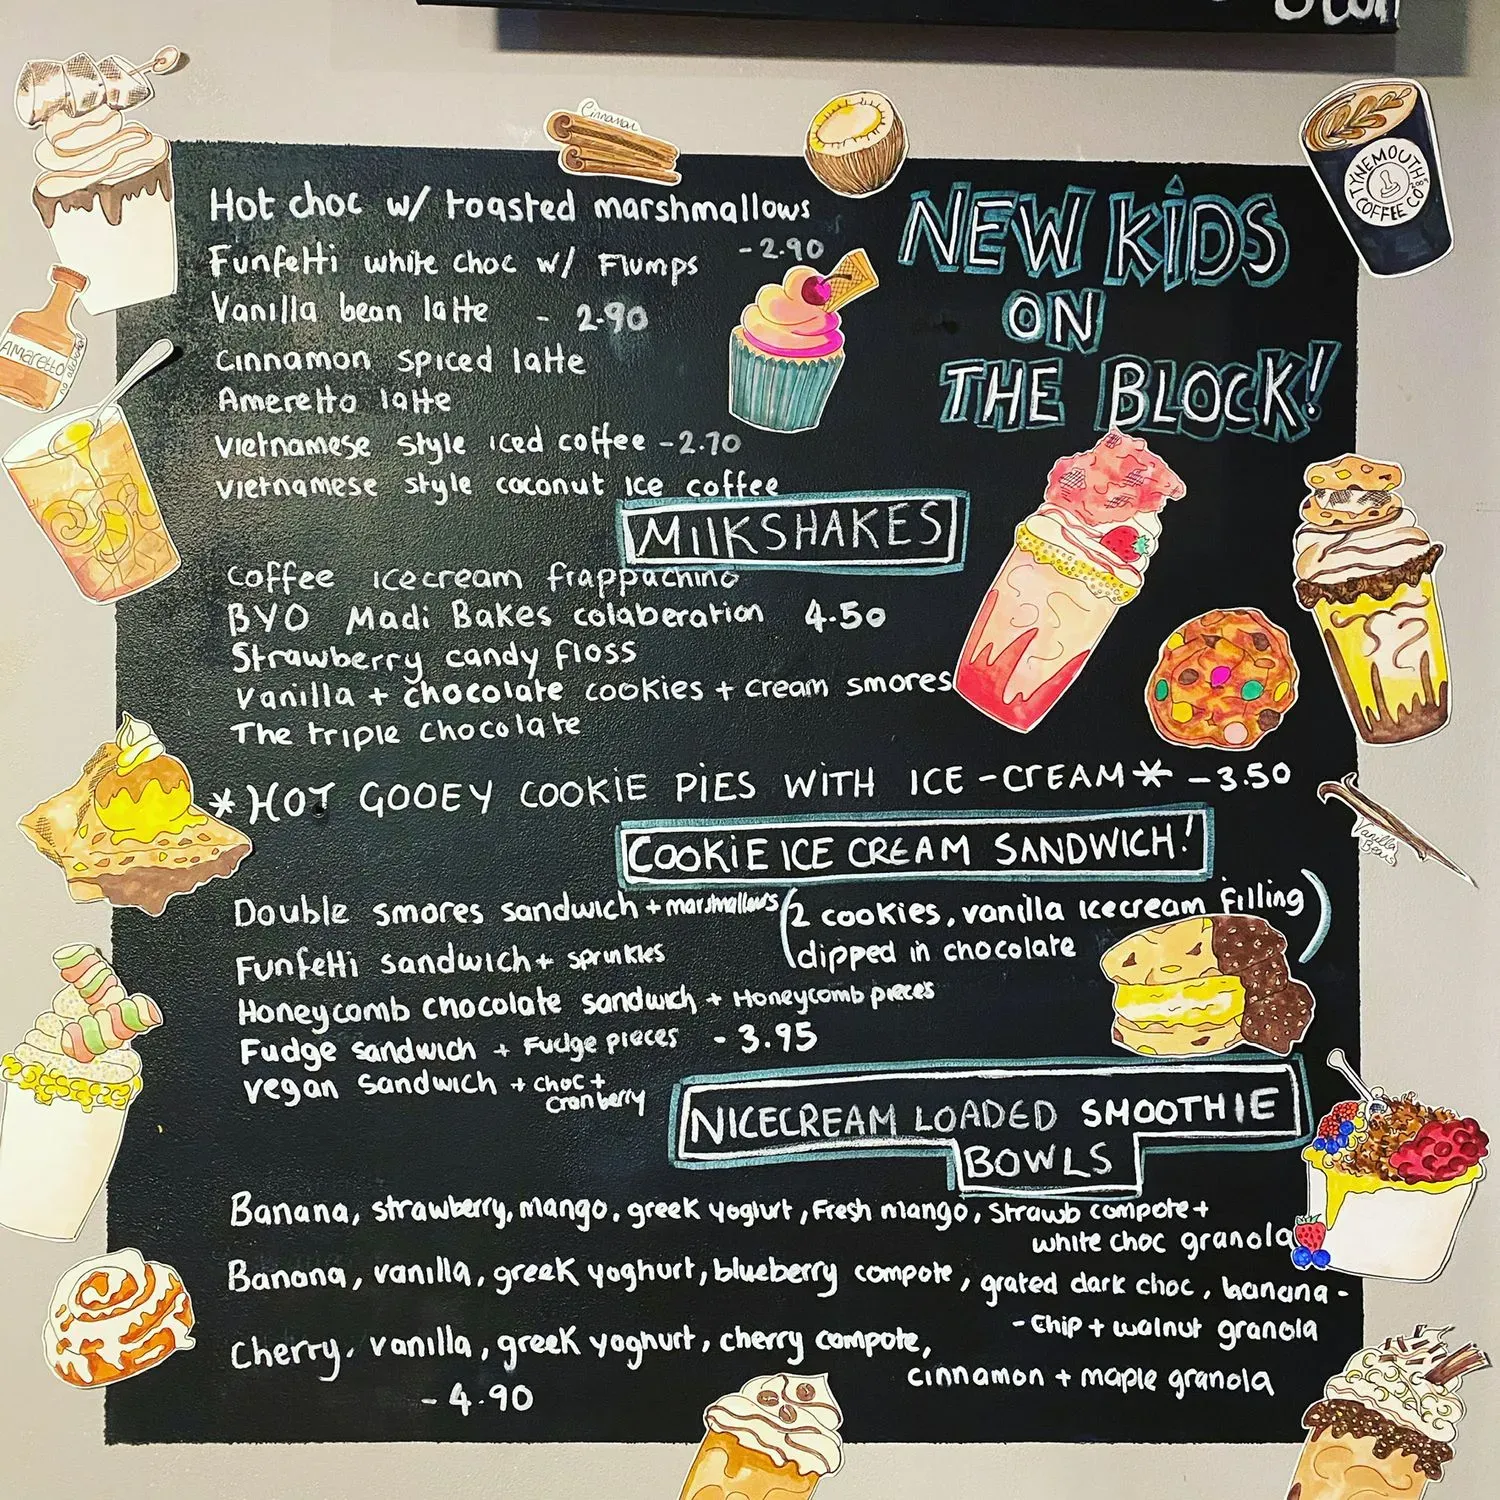 Cinnamon
TYNEMOUTH COFFEE CO
NEW KIDS
ON
THE BLOCK!
Hot choc w/ toasted marshmallows
- 2.90
Funfetti white choc w/ Flumps
Vanilla bean latte - 2.90
Cinnamon spiced latte
Ameretto latte
Vietnamese style iced coffee - 2.70
Vietnamese style coconut ice coffee
Amaretto
MILKSHAKES
Coffee icecream frappuchino
BYO Madi Bakes colaberation 4.50
Strawberry candy floss
Vanilla + chocolate cookies + cream smores
The triple chocolate
*HOT GOOEY COOKIE PIES WITH ICE-CREAM* - 3.50
Vanilla
Beans
COOKIE ICE CREAM SANDWICH!
Double smores sandwich + marshmallows
(2 cookies, vanilla icecream filling
dipped in chocolate)
Funfetti sandwich + sprinkles
Honeycomb chocolate sandwich + Honeycomb pieces
Fudge sandwich + Fudge pieces - 3.95
Vegan sandwich + choc +
cranberry
NICECREAM LOADED SMOOTHIE
BOWLS
Banana, strawberry, mango, greek yoghurt, Fresh mango, Strawb compote +
white choc granola
Banana, vanilla, greek yoghurt, blueberry compote, grated dark choc, banana -
- chip + walnut granola
Cherry, vanilla, greek yoghurt, cherry compote,
cinnamon + maple granola
- 4.90